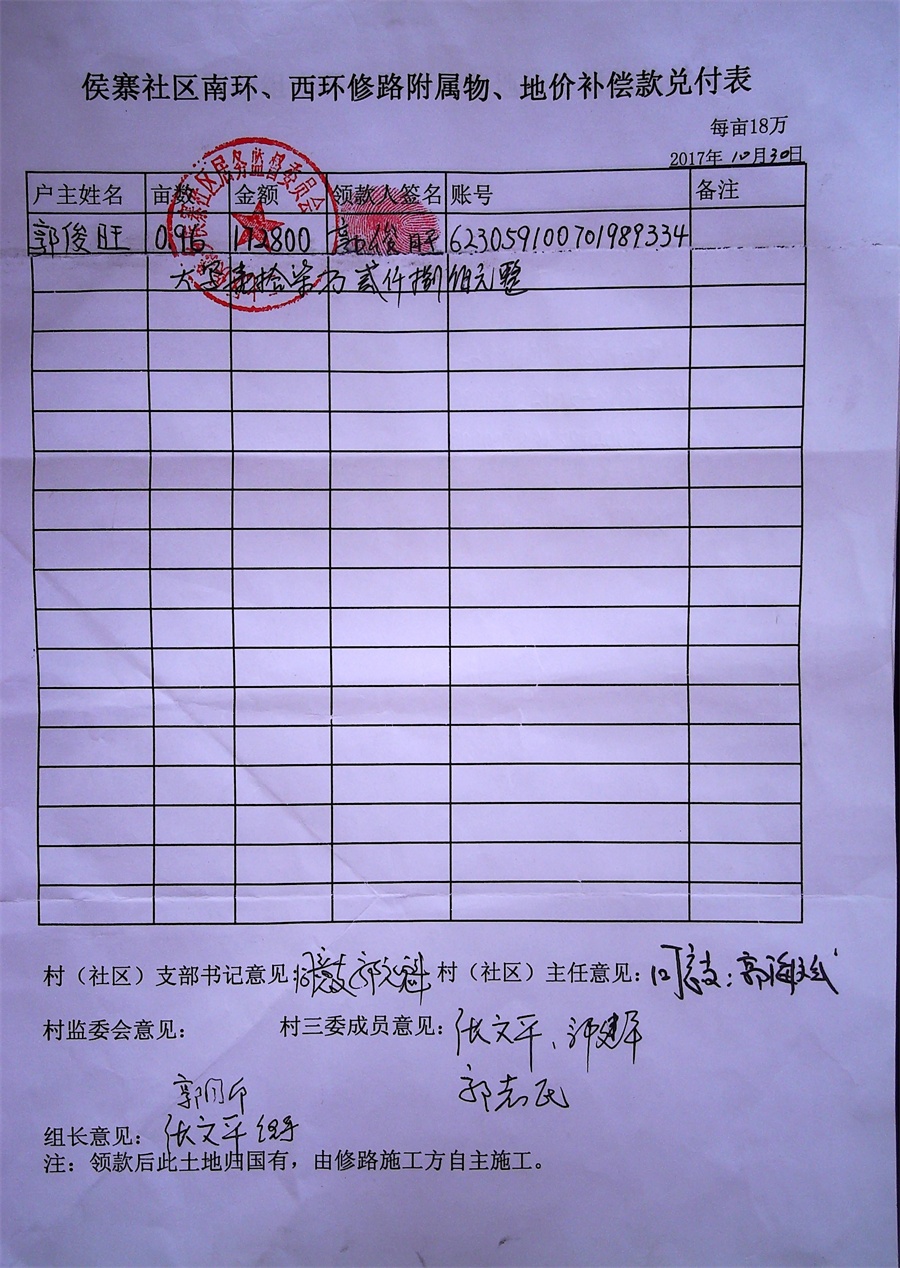 侯寨社区南环、西环修路附属物、地价补偿款兑付表
每亩18万
2017年10月30日
户主姓名 亩数 金额 领款人签名 账号 备注
郭俊旺 0.96 172800 郭俊旺 6230591007019893​34
大写壹拾柒万贰仟捌佰元整
侯寨社区居务监督委员会
村（社区）支部书记意见： 村（社区）主任意见：同意：郭海斌
村监委会意见： 村三委成员意见：张文平、郭建军
郭志民
组长意见：张文平
注：领款后此土地归国有，由修路施工方自主施工。